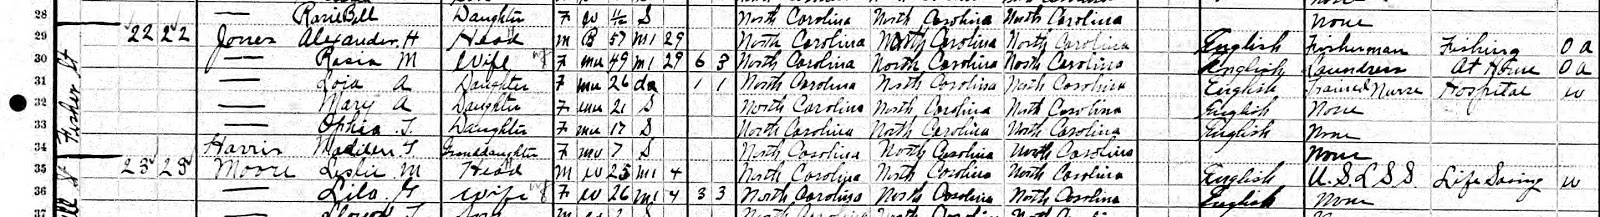 28 — Rosie Bell Daughter F W S North Carolina North Carolina North Carolina None
29 22 22 Jones Alexander H Head M B 57 M1 29 North Carolina North Carolina North Carolina English Fisherman Fishing O A
30 — Rosia M Wife F Mu 49 M1 29 6 3 North Carolina North Carolina North Carolina English Laundress At Home O A
31 — A Daughter F Mu 26 1 1 North Carolina North Carolina North Carolina English Trained Nurse Hospital W
32 — Mary A Daughter F Mu 21 S North Carolina North Carolina North Carolina English None
33 — T. Daughter F Mu 17 S North Carolina North Carolina North Carolina English None
34 Harris T Granddaughter F Mu 7 S North Carolina North Carolina North Carolina None
35 23 23 Moore Leslie M Head M W 25 M1 4 North Carolina North Carolina North Carolina English U.S.L.S.S. Life Saving W
36 — Lila Wife F W 26 M1 4 3 3 North Carolina North Carolina North Carolina English None
37
Fisher St